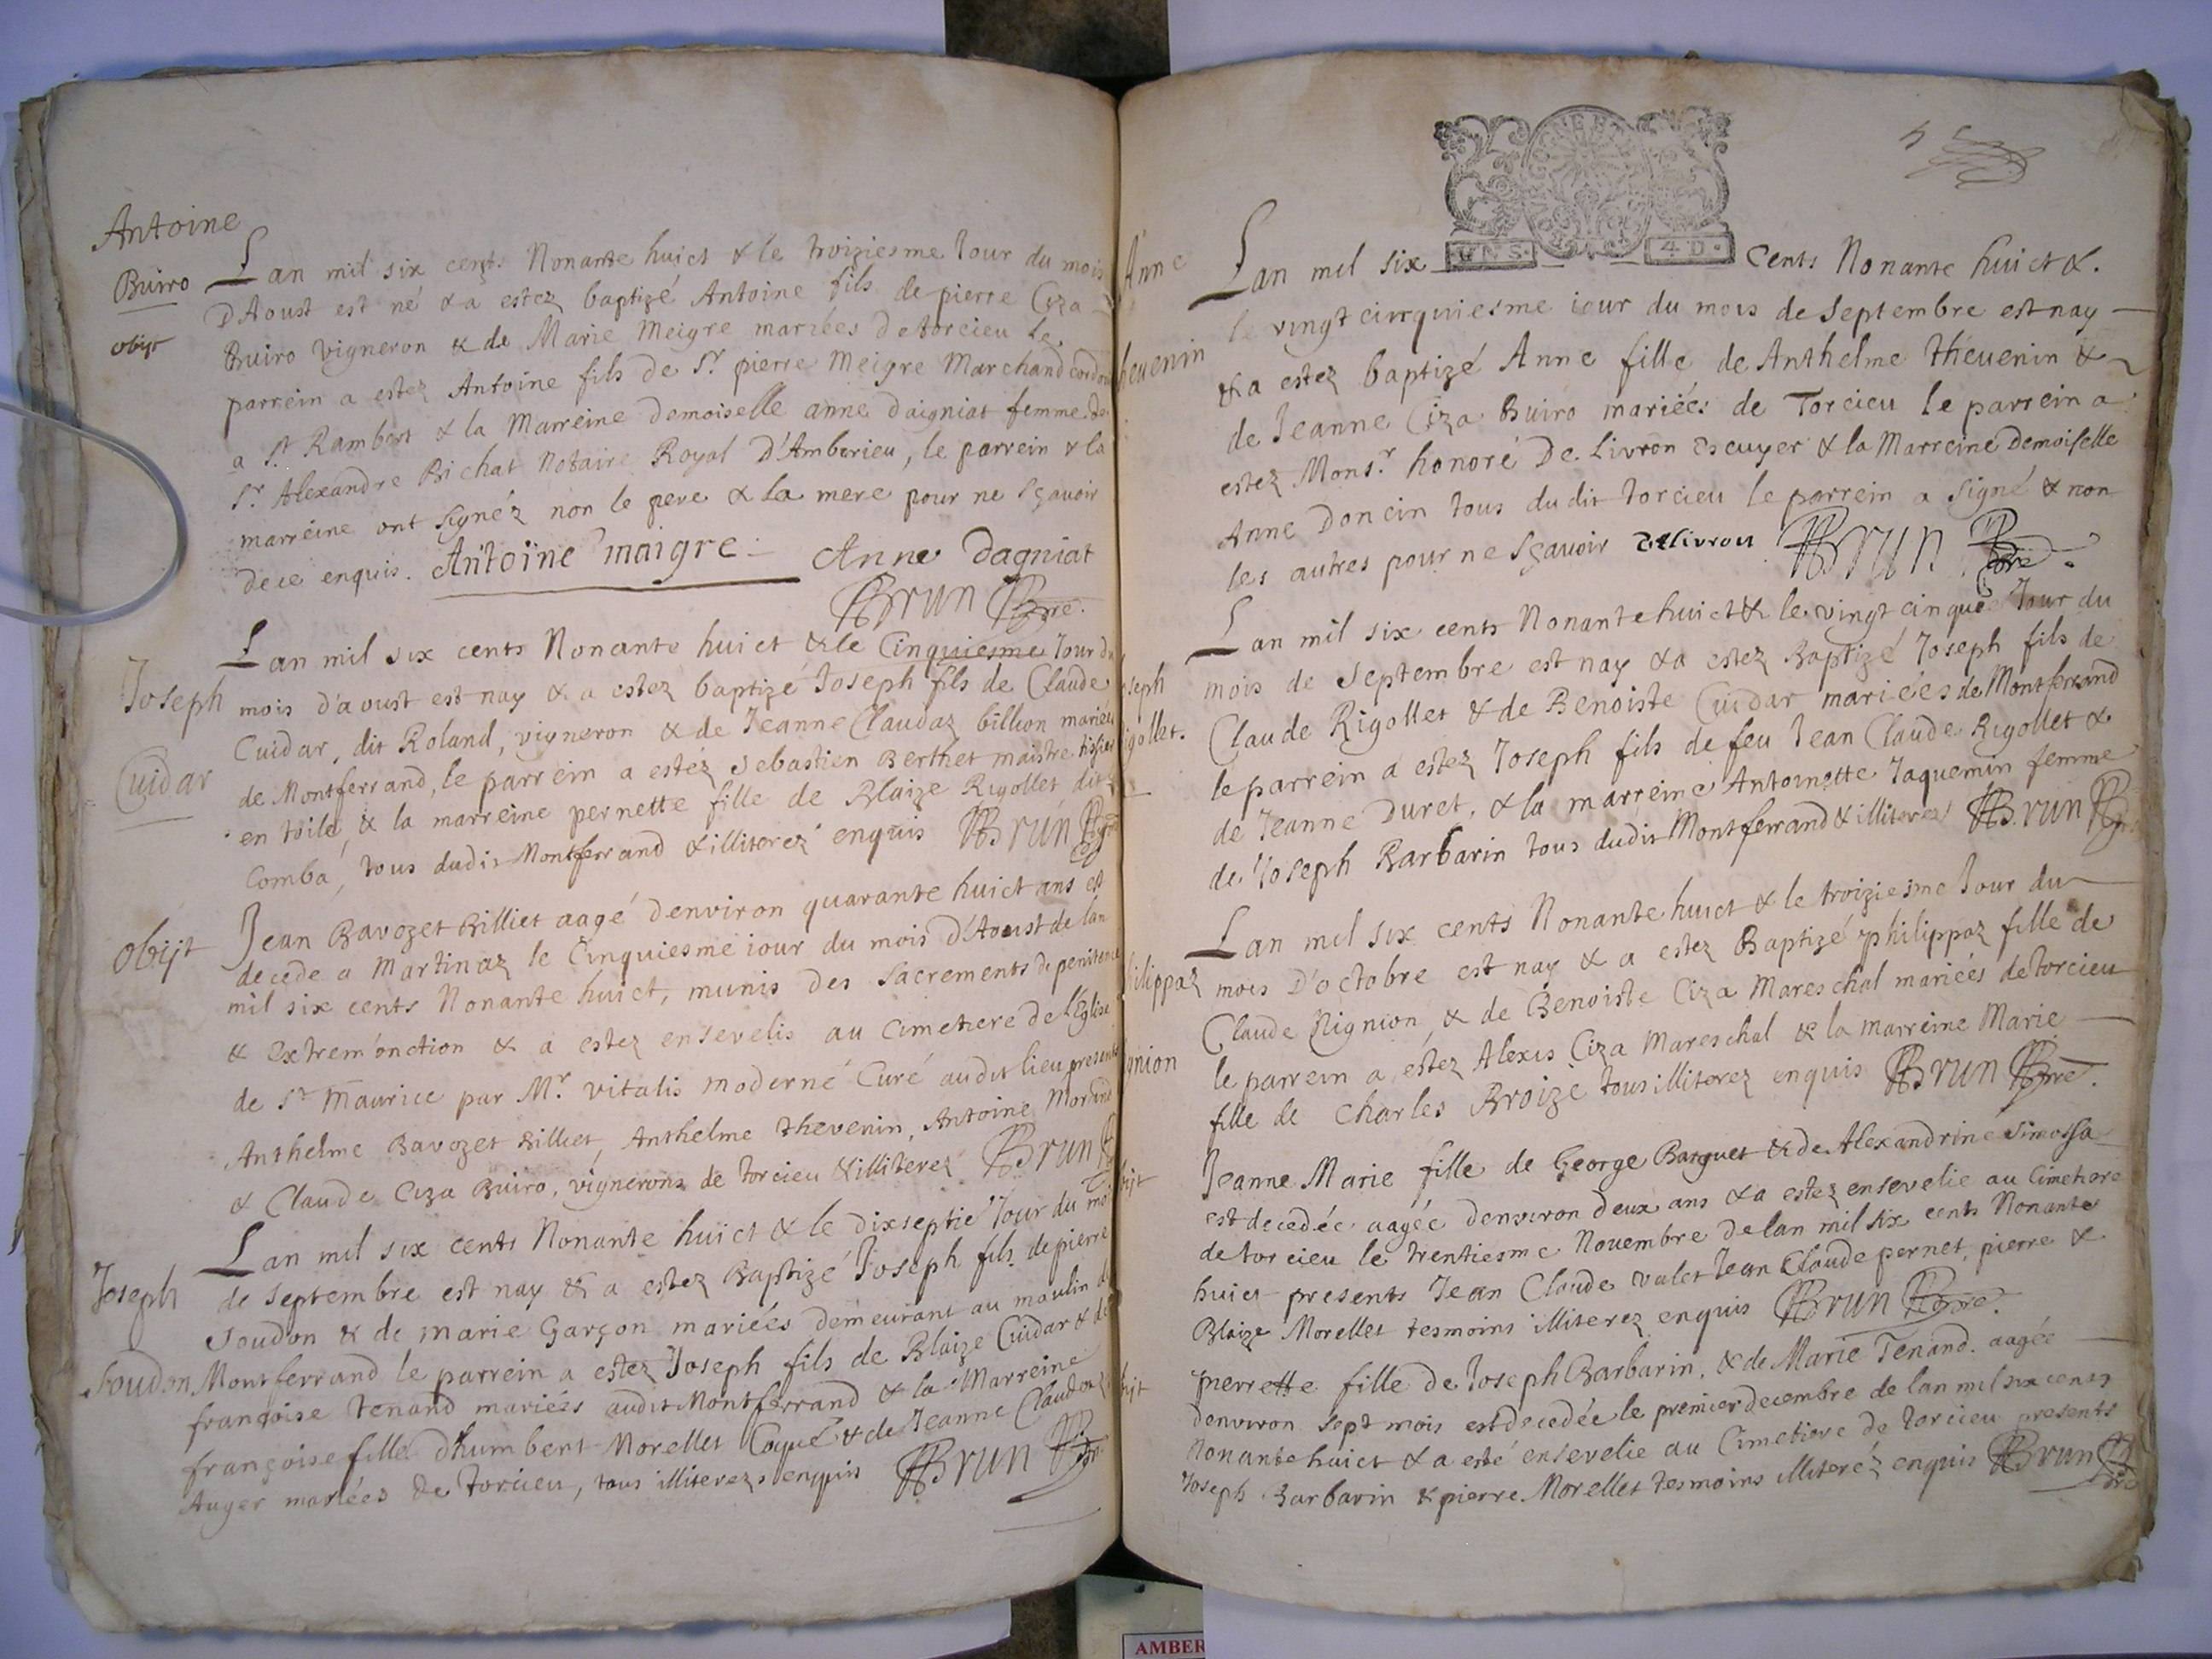 Antoine
Buiro
obijt
Lan mil six cents Nonante huict & le troiziesme Jour du mois
D'Aoust est né & a estez baptizé Antoine fils de pierre Ciza
Buiro vigneron & de Marie Meigre mariées de torcieu le
parrein a estez Antoine fils de Sr. pierre Meigre Marchand
a St. Rambert & la Marreine Demoiselle anne daigniat femme de
Sr. Alexandre Bichat Notaire Royal D'Amberieu, le parrein & la
marreine ont signéz non le pere & la mere pour ne sçavoir
de ce enquis. Antoine maigre Anne Dagniat
Brun Pbre.
Joseph
Cuidar
Lan mil six cents Nonante huict & le Cinquiesme Jour du
mois d'aoust est nay & a estez baptizé Joseph fils de Claude
Cuidar, dit Roland, vigneron & de Jeanne Claudaz billion mariées
de Montferrand, le parrein a estéz Sebastien Berthet maistre tissier
en toile, & la marreine pernette fille de Blaize Rigollet dit
Comba, tous dudit Montferrand & illiterez enquis Brun
obijt
Jean Bavozet Billiet aagé denviron quarante huict ans est
decede a Martinaz le Cinquiesme iour du mois d'Aoust de lan
mil six cents Nonante huict, munis des Sacrements de penitence
& Extrem'onction & a estez ensevelis au Cimetiere de l'Eglise
de St Maurice par Mr. vitalis moderne Curé audit lieu presents
Anthelme Bavozet Billiet, Anthelme thevenin, Antoine Morand
& Claude Ciza Buiro, vignerons de torcieu & illiterez Brun
Joseph
Soudon
Lan mil six cents Nonante huict & le dixseptie Jour du moi
de Septembre est nay & a estez Baptizé Joseph fils de pierre
Soudon & de marie Garçon mariéés demeurant au moulin de
Montferrand le parrein a estez Joseph fils de Blaize Cuidar & de
françoise tenand mariéés audit Montferrand & la Marreine
françoise fille d'humbert Morellet Coque & de Jeanne Claudaz
Auger mariées de torcieu, tous illiterezs enquis Brun
Anne
hevenin
Lan mil six Cents Nonante huict &.
UN S. 4 D.
le vingt cinquiesme iour du mois de Septembre est nay
& a estez baptizé Anne fille de Anthelme thévenin &
de Jeanne Ciza Buiro mariées de Torcieu le parrein a
estez Monsr. honoré De Livron Escuyer & la Marreine Demoiselle
Anne Doncin tous dudit torcieu le parrein a signé & non
les autres pour ne sçavoir Delivron Brun Pbre.
oseph
igollet.
Lan mil six cents Nonante huict & le vingt cinque Jour du
mois de Septembre est nay & a estez Baptizé Joseph fils de
Claude Rigollet & de Benoiste Cuidar mariées de Montferrand
le parrein a estez Joseph fils de feu Jean Claude Rigollet &
de Jeanne Duret, & la marreine Antoinette Jaquemin femme
de Joseph Barbarin tous dudit Montferrand & illiterez Brun
hilippaz
gnion
Lan mil six cents Nonante huict & le troiziesme Jour du
mois D'octobre est nay & a estez Baptizé philippaz fille de
Claude Pignion, & de Benoiste Ciza Mareschal mariéés de torcieu
le parrein a éstez Alexis Ciza Mareschal & la marreine Marie
fille de Charles Broize tous illiterez enquis Brun Pbre.
bijt
Jeanne Marie fille de George Barquet & de Alexandrine
est decedée aagée denviron deux ans & a estez ensevelie au Cimetiere
de torcieu le trentiesme Novembre de lan mil six cents Nonante
huict presents Jean Claude valet Jean Claude pernet, pierre &
Blaize Morellet tesmoins illiterez enquis Brun Pbre.
bijt
pierrette fille de Joseph Barbarin, & de Marie Tenand. aagée
denviron sept mois est decedée le premier decembre de lan mil six cents
Nonante huict & a esté ensevelie au Cimetiere de torcieu presents
Joseph Barbarin & pierre Morellet tesmoins illiteréz enquis Brun Pbre
AMBER